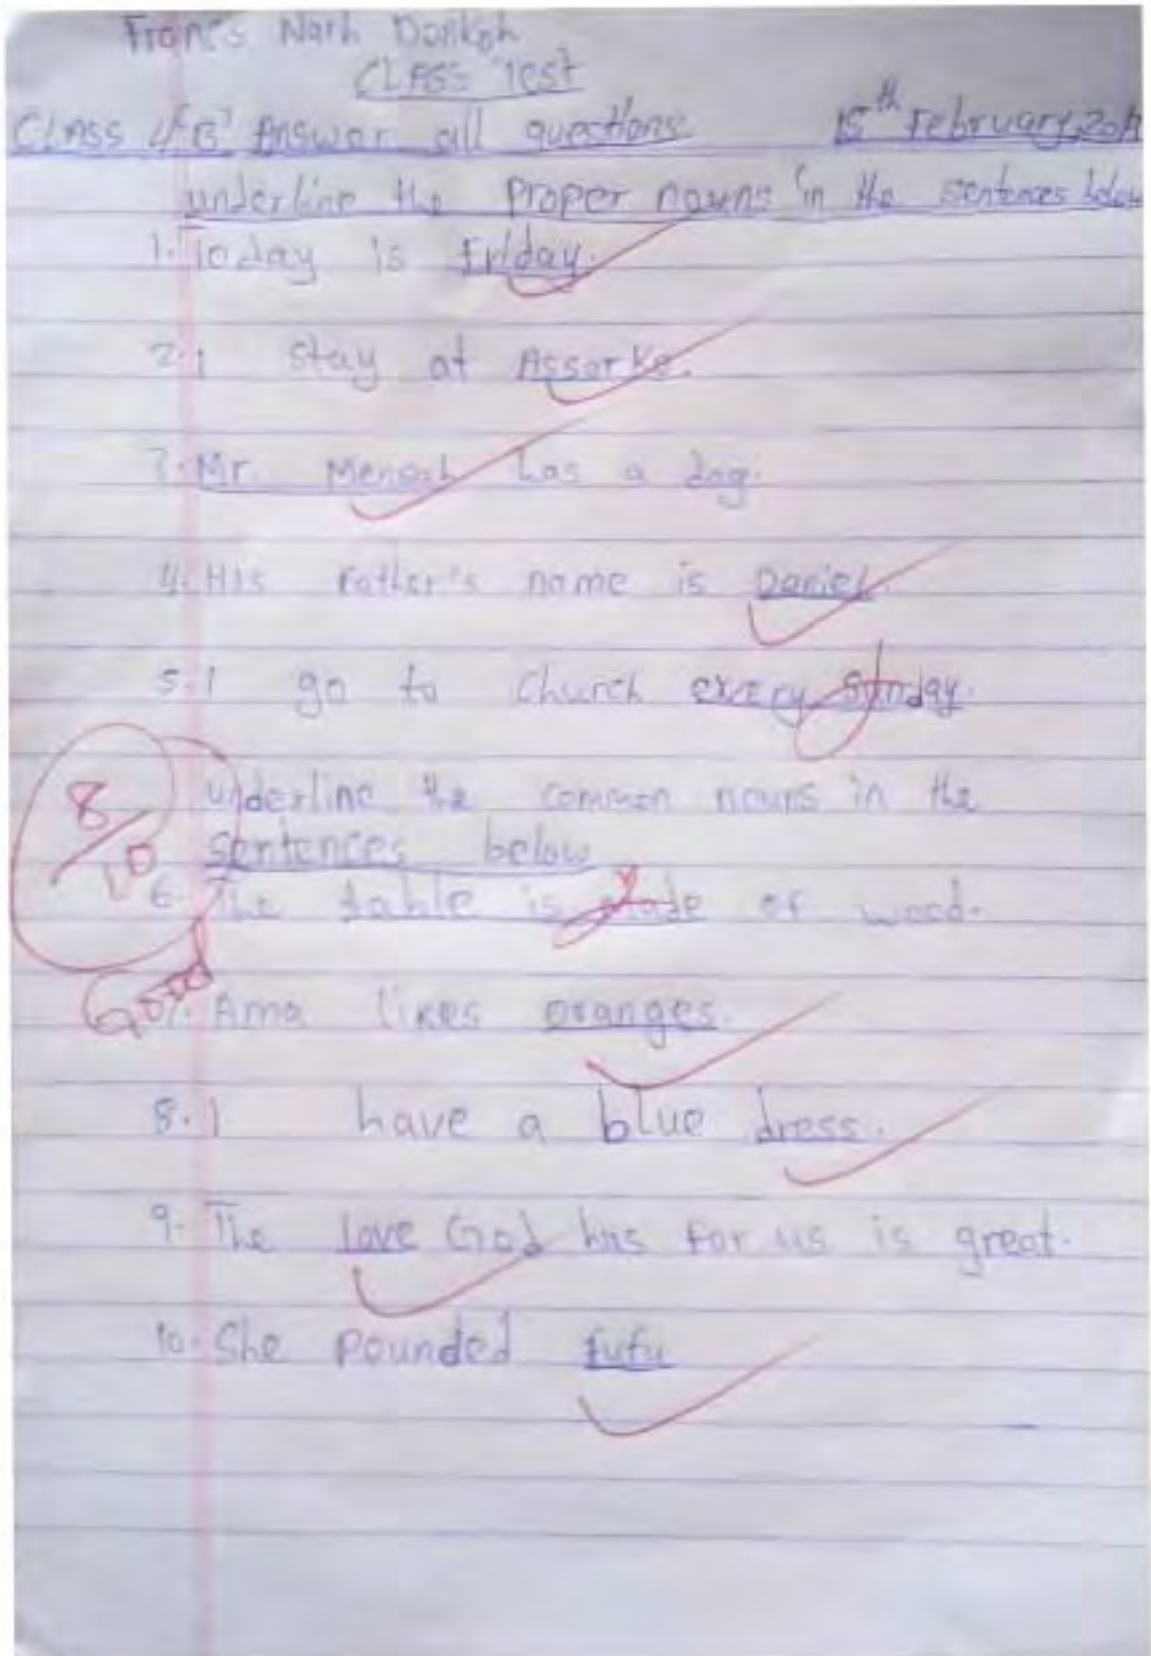 Francis Narh Donkoh
CLASS Test
CLASS 4'B' Answer all questions 15th February, 
underline the proper nouns in the sentences below
1. Today is Friday.
2. I stay at Assorko.
3. Mr. Mensah has a dog.
4. His Father's name is Daniel.
5. I go to Church every Sunday.
underline the common nouns in the
sentences below
8/10
6. The table is made of wood.
Good
7. Ama likes oranges.
8. I have a blue dress.
9. The love God has for us is great.
10. She pounded fufu